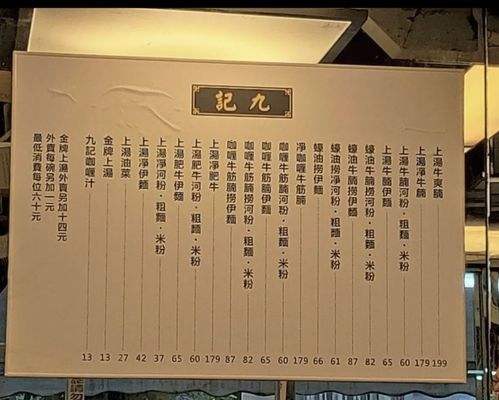 九記
上湯牛爽腩 199
上湯淨牛腩 179
上湯牛腩河粉·粗麵·米粉 60
上湯牛腩伊麵 65
蠔油牛腩撈河粉·粗麵·米粉 82
蠔油牛腩撈伊麵 87
蠔油撈淨河粉·粗麵·米粉 61
蠔油撈伊麵 66
淨咖喱牛筋腩 179
咖喱牛筋腩河粉·粗麵·米粉 60
咖喱牛筋腩伊麵 65
咖喱牛筋腩撈河粉·粗麵·米粉 82
咖喱牛筋腩撈伊麵 87
上湯淨肥牛 179
上湯肥牛河粉·粗麵·米粉 60
上湯肥牛伊麵 65
上湯淨河粉·粗麵·米粉 37
上湯淨伊麵 42
上湯油菜 27
金牌上湯 13
九記咖喱汁 13
金牌上湯外賣另加十四元
外賣每碗另加一元
最低消費每位六十元